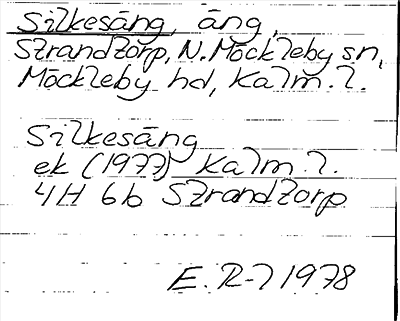 Silkesäng, äng,
Strandtorp, N. Möckleby sn,
Möckleby hd, Kalm. l.
Silkesäng
ek (1977) Kalm. l.
4H 6b Strandtorp
E. R-l 1978